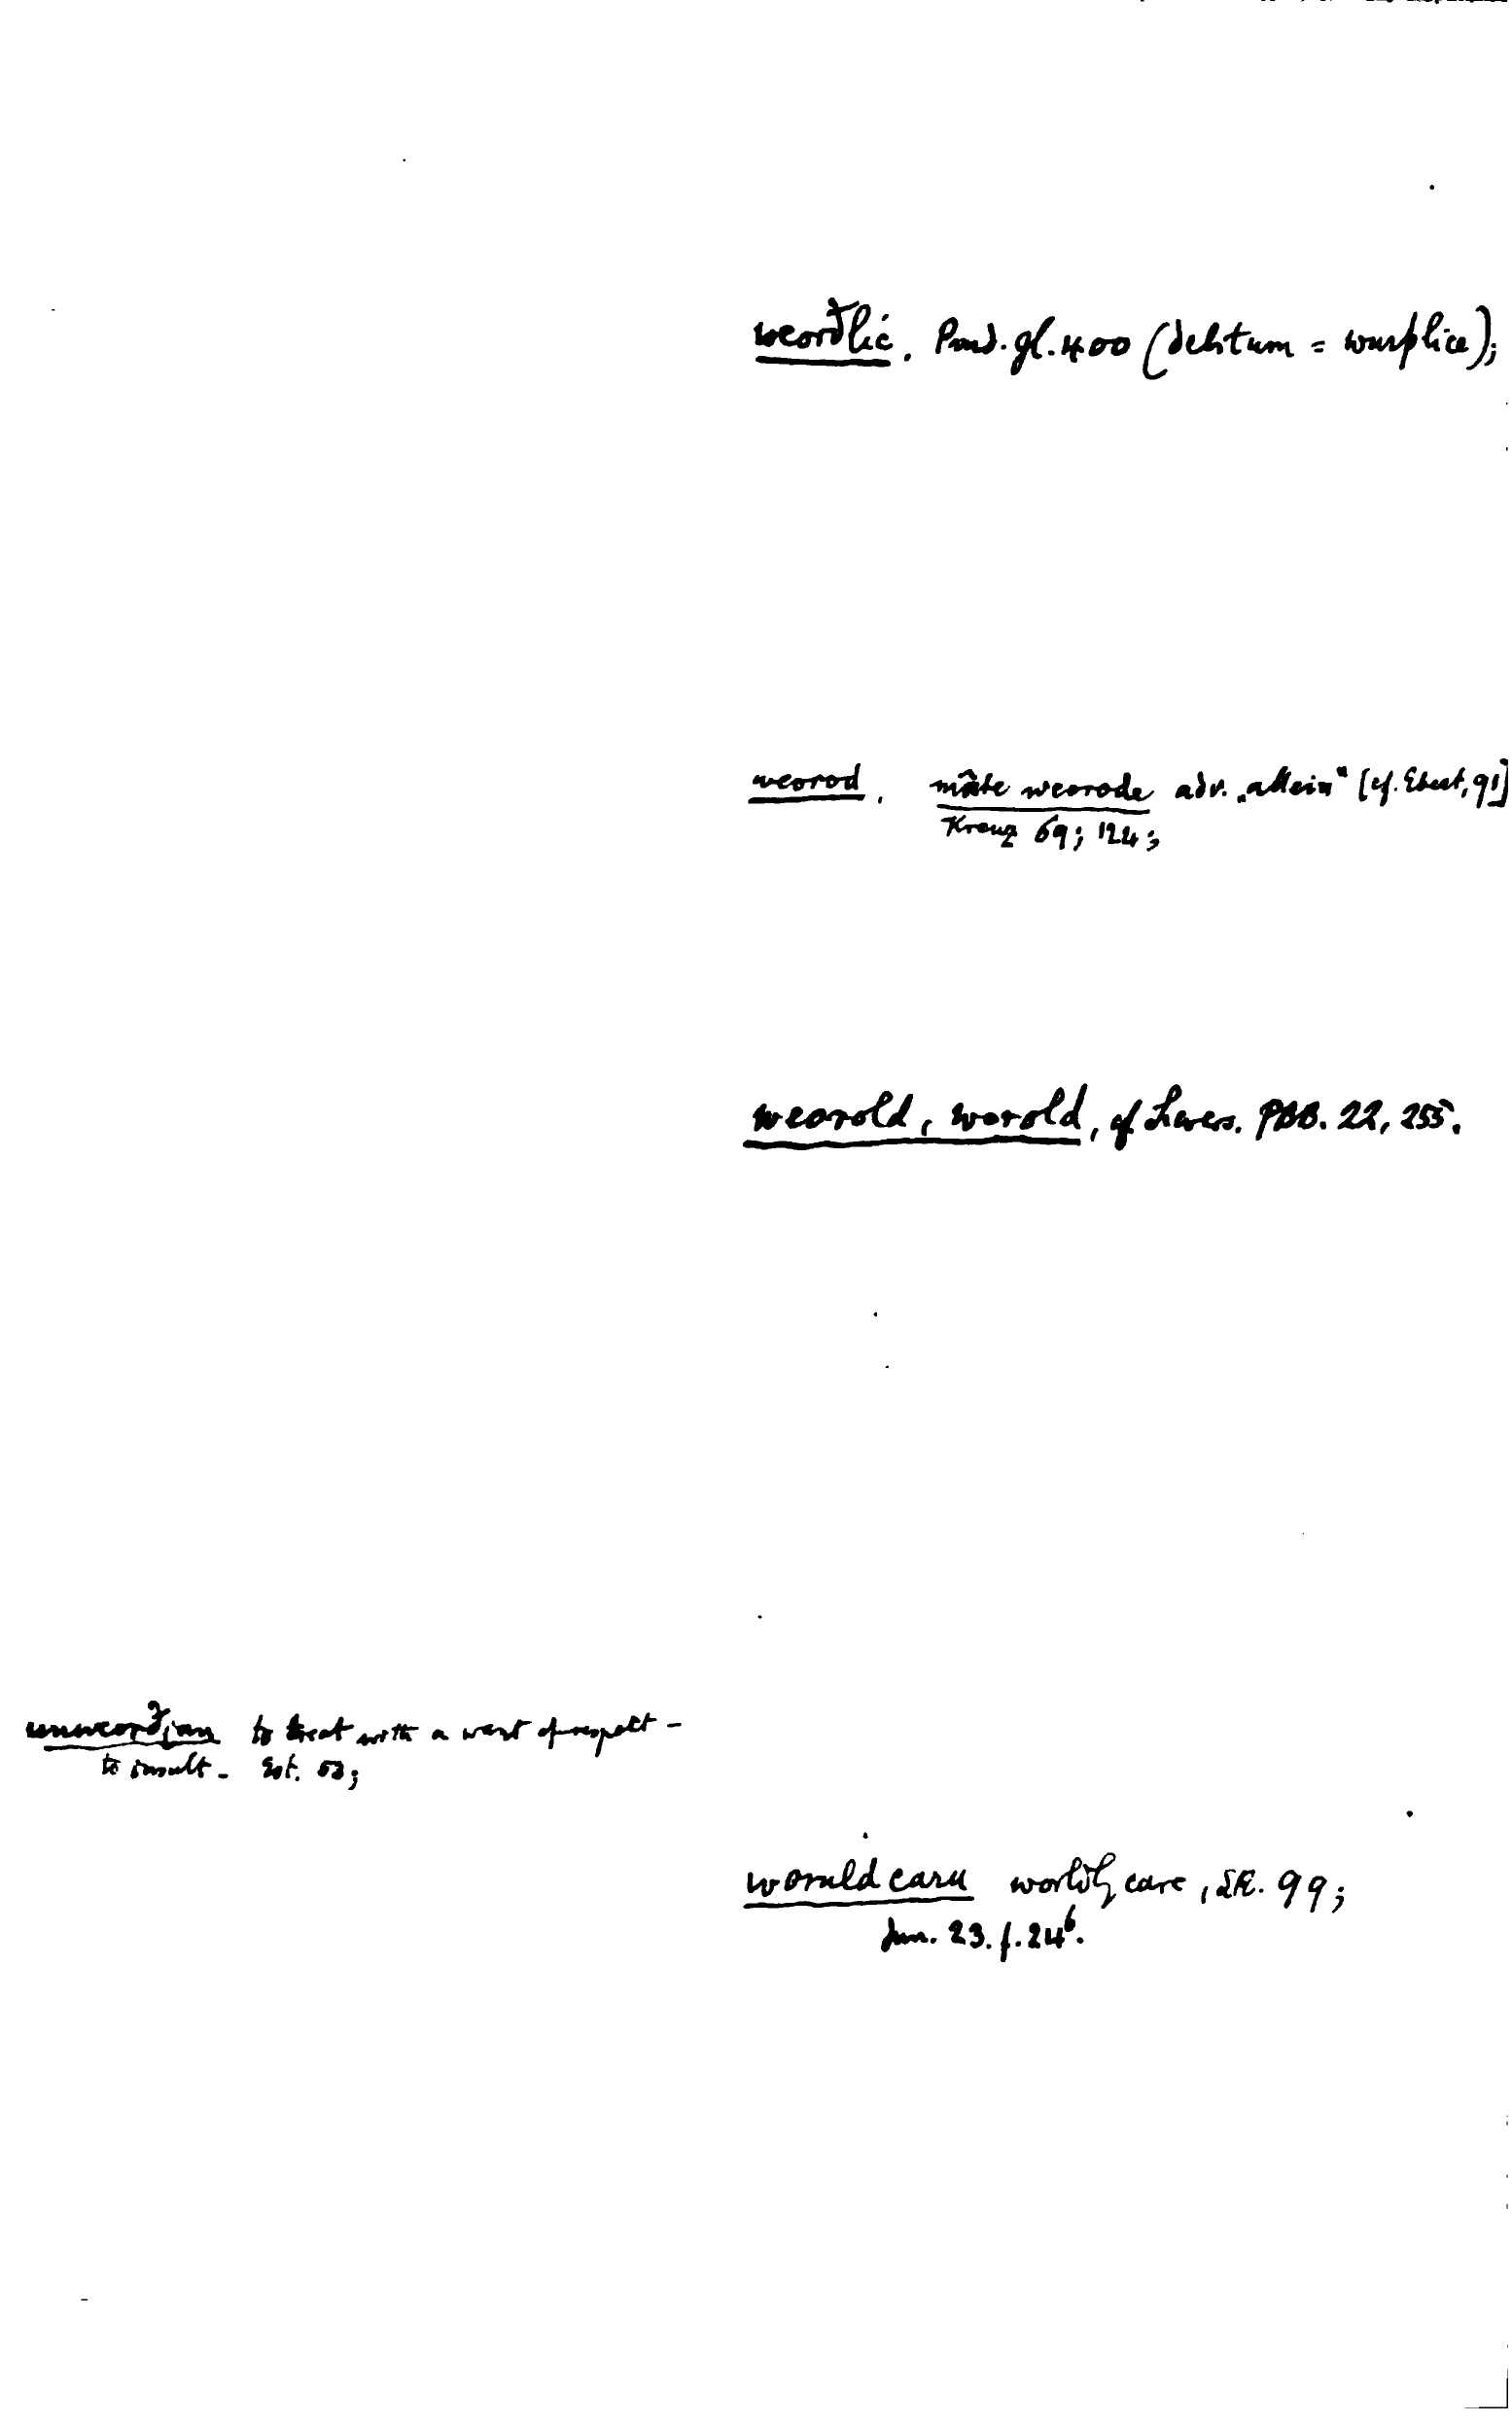 weorðlic. Prud. gl. 400 (debitum = wurþlice);
weorod. mâte weorode adv. „allein“ [cf. Ebert, 91]
Kreuz 69; 124;
weorold, worold, cf PBB. 22, 255.
unweorðian to treat with a want of respect -
to insult -
woruldcaru worldly care, 99;
Jun. 23. f. 24b.